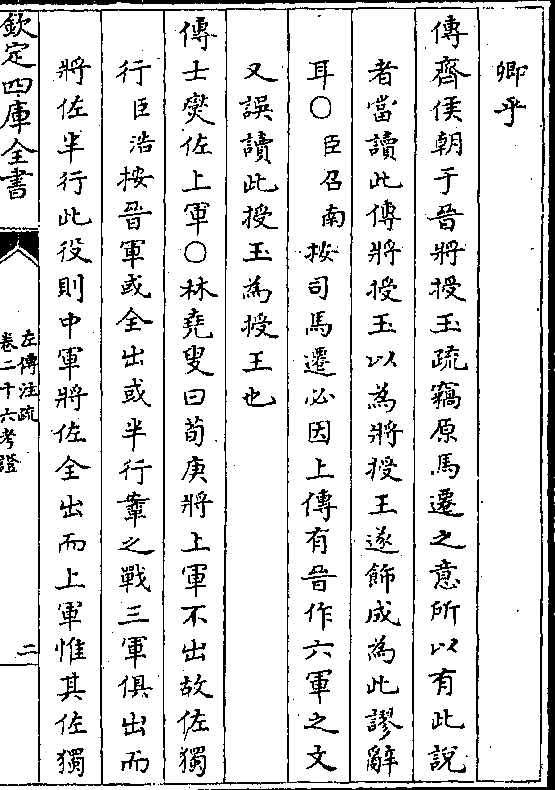 卿乎
傳齊侯朝于晉將授玉疏竊原馬遷之意所以有此說
者當讀此傳將授玉以為將授王遂飾成為此謬辭
耳○臣召南按司馬遷必因上傳有晉作六軍之文
又誤讀此授玉為授王也
傳士燮佐上軍○林堯叟曰荀庚將上軍不出故佐獨
行臣浩按晉軍或全出或半行鞌之戰三軍俱出而
將佐半行此役則中軍將佐全出而上軍惟其佐獨
欽定四庫全書
左傳注疏
卷二十六考證
二